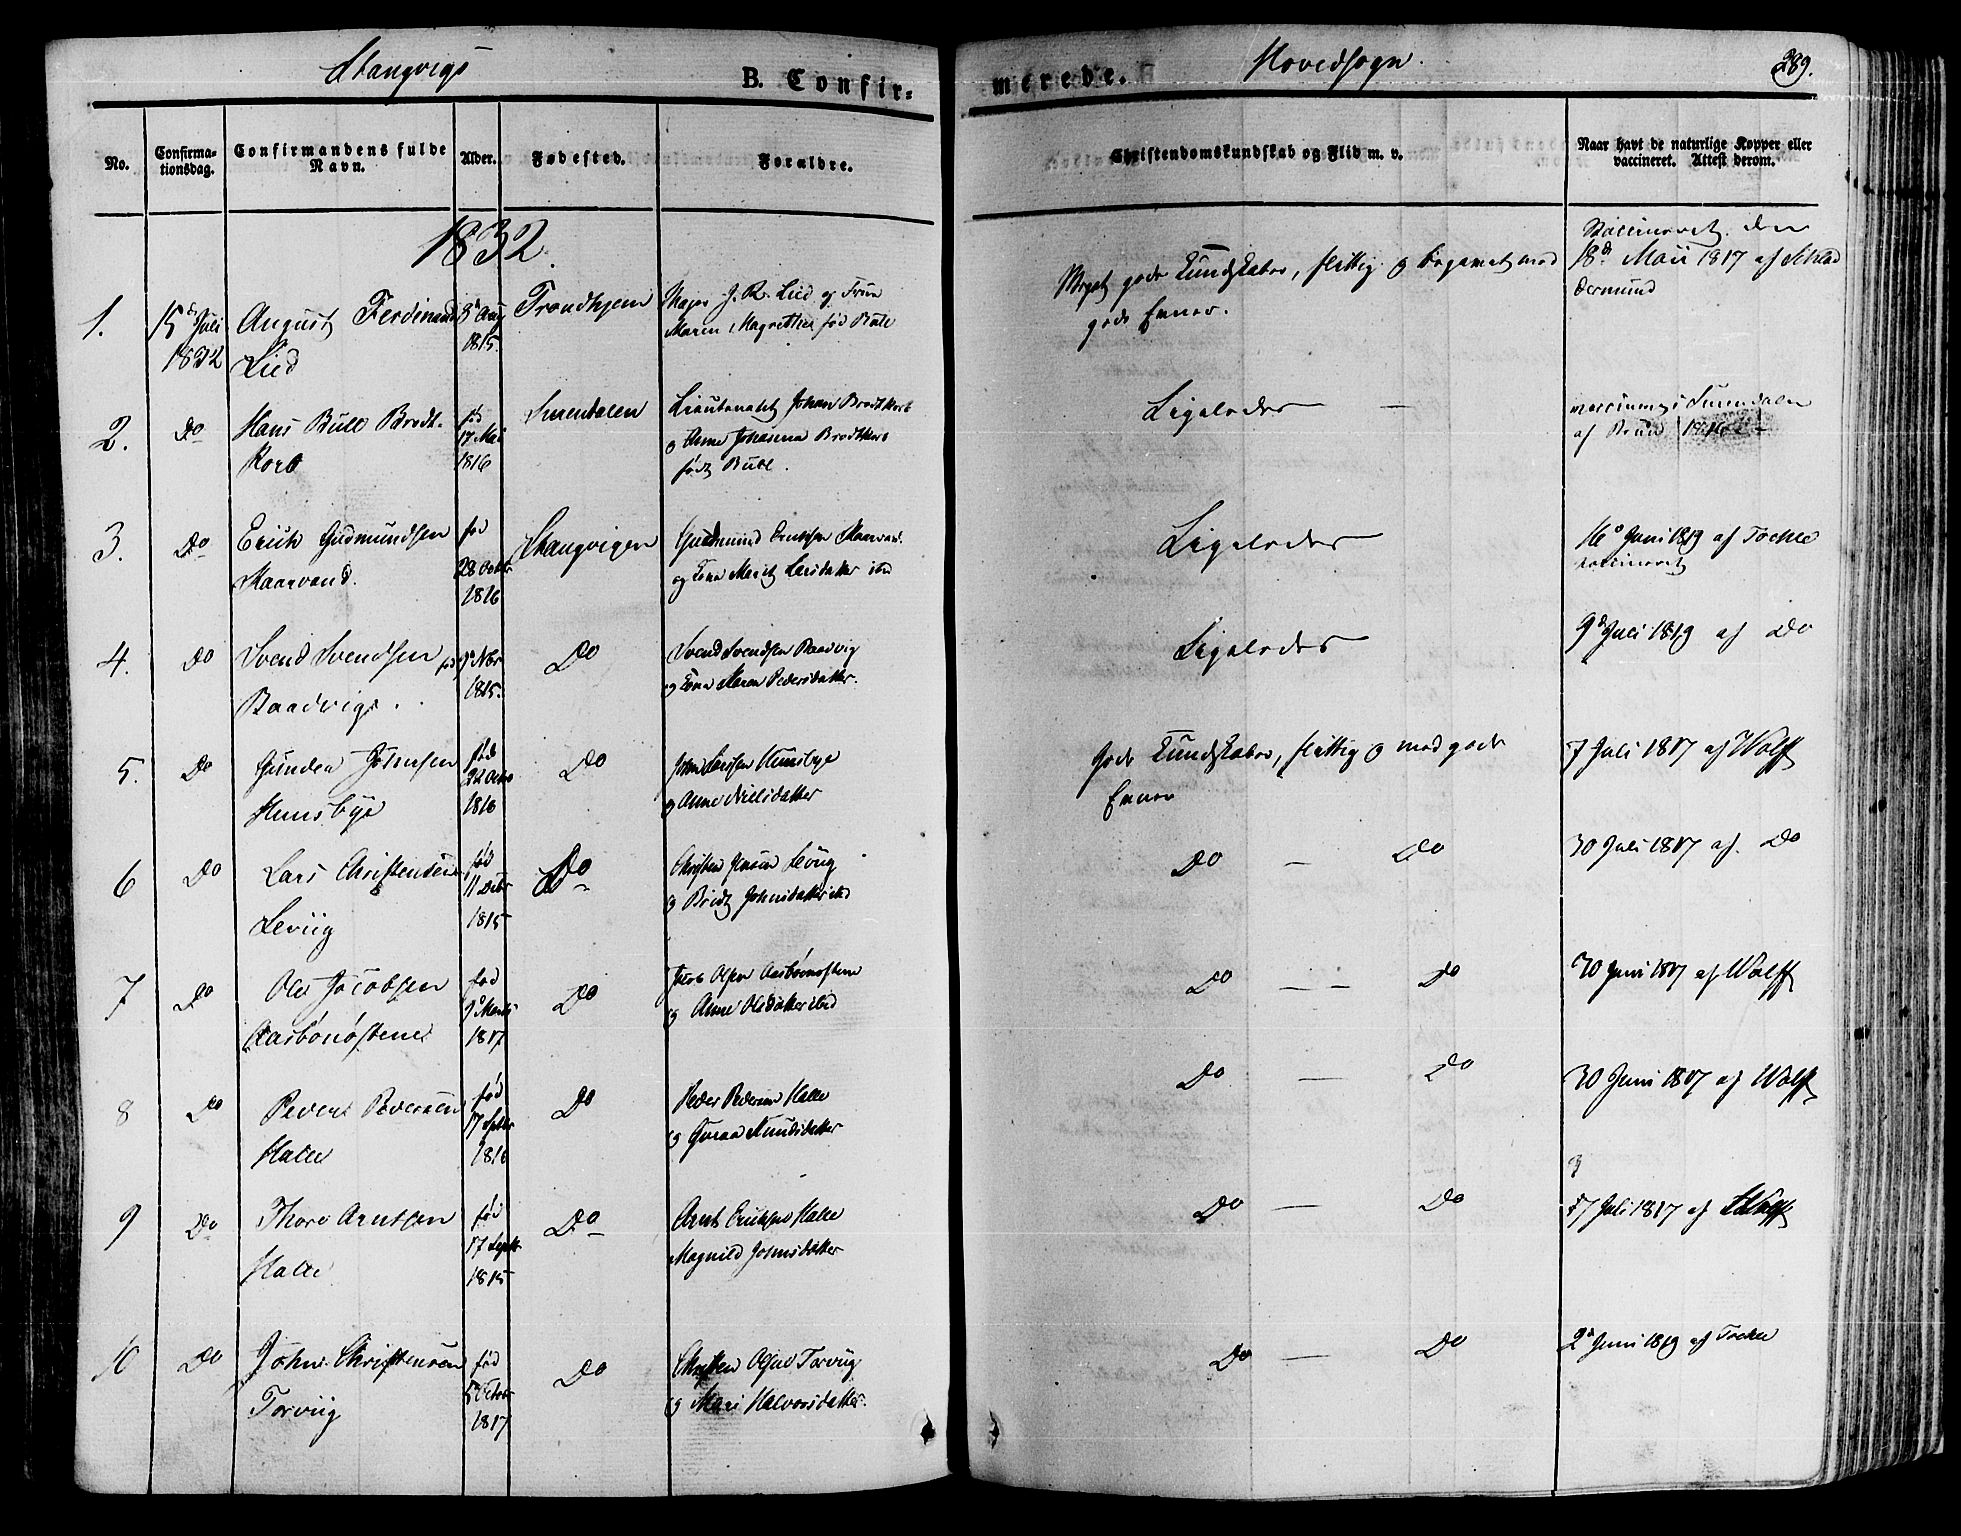 Stangvigs
B. Confir-
merede.
Hovedsogn.
289.
No.
Confirma-
tionsdag.
Confirmandens fulde
Navn.
Alder.
Fødested.
Forældre.
Christendomskundskab og Flid m. v.
Naar havt de naturlige Kopper eller
vaccineret. Attest derom.
1832.
1. 15d Juli 1832
August Ferdinand
Lied
8d Aug 1815.
Trondhjem
Major J. R. Lied og Frue
Maren Magrethe fød Bull
Meget gode Kundskaber, flittig og begavet med
gode Evner.
Vaccineret den
18d Maii 1817 af
2. Do
Hans Bull Brodt-
korb
fød 17 Mai 1816
Surendalen
Lieutenant Johan Brodtkorb
og Anne Johanna Brodtkorb
født Bull.
Ligeledes —
Surendalen
af
3. Do
Erich Gudmundsen
Kaarvand.
fød 28 Octbr 1816
Stangvigen
Gudmund Erichsen Kaarvand
og Kone Marit Larsdatter ibd
Ligeledes
16d Juni 1819 af Tochle
vaccineret
4. Do
Svend Svendsen
Baadvigs.
fød 9d Nbr 1815.
Do
Svend Svendsen Baadvig
og Kone Maren Pedersdatter.
Ligeledes
9d Juli 1819 af Do
5. Do
Gunder Johnsen
Hunsbye
fød 22 Octbr 1816
Do
John Larssen Hunsbye
og Anne Nielsdatter
Gode Kundskaber, flittig og med gode
Evner
7 Juli 1817 af Wolff
6 Do
Lars Christensen
Leviig
fød 11 Decbr 1815
Do
Christen Jensen Leviig
og Bridt Johnsdatter ibd
Do — Do
30 Juli 1817 af Do
7 Do
Ole Jacobsen
Aasbønøstene
fød 9d Marts 1817
Do
Jacob Olsen Aasbønøstene
og Anne Olsdatter ibid
Do — — Do
30 Juni 1817 af Wolff
8 Do
Peder Pedersen
Halle
fød 17 Septbr 1816
Do
Peder Pedersen Halle
og Guroe Knudsdatter
Do — Do
30 Juni 1817 af Wolff
9 Do
Thore Arntsen
Halle
fød 17 Septbr 1815
Do
Arnt Erichsen Halle
Magnild Johnsdatter
Do — Do
7 Juli 1817 af Wolff
10 Do
John Christensen
Torviig
fød 5 Octobr 1817
Do
Christen Olsen Torviig
og Mari Halvorsdatter.
Do — Do
2d Juni 1819 af Tochle